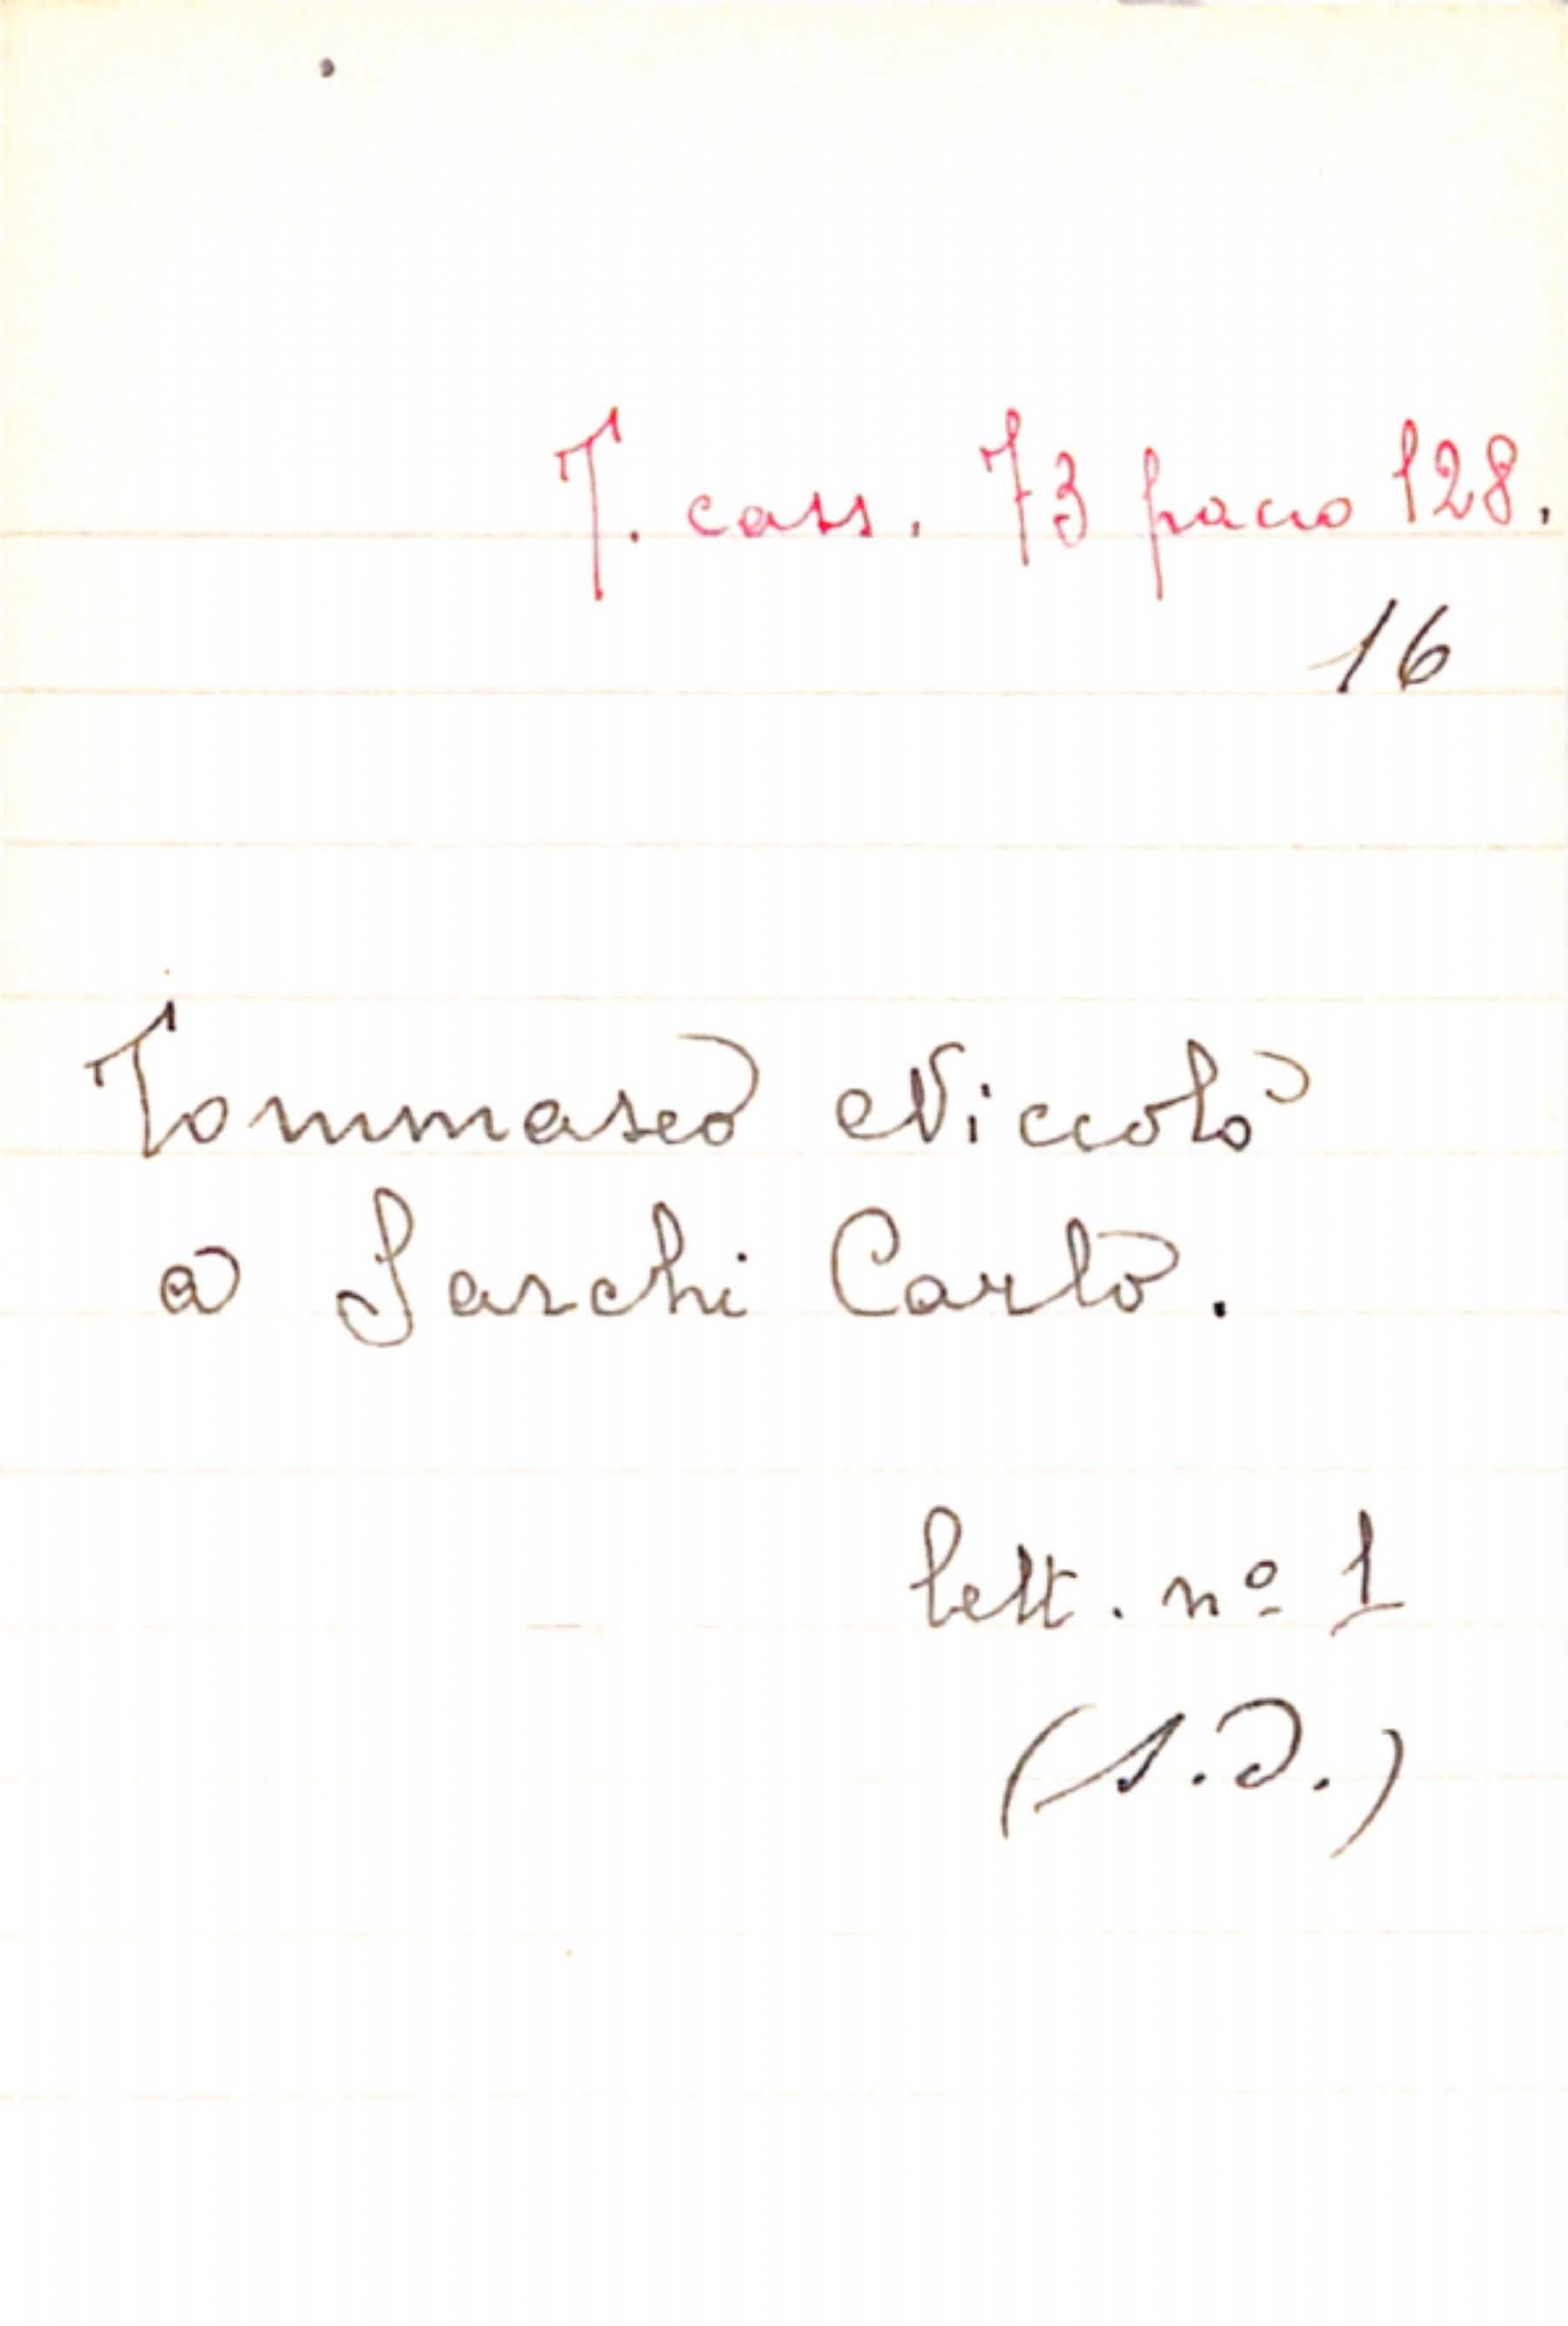 T. cass. 73 pacco 128.
16
Tommaseo Niccolò
a Sarchi Carlo.
lett. nº 1
(s.d.)